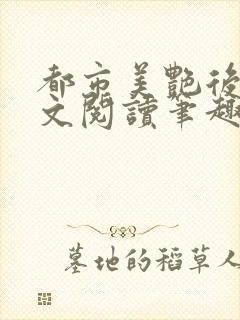 都市美艷後
文閱讀筆趣
墓地的稻草人